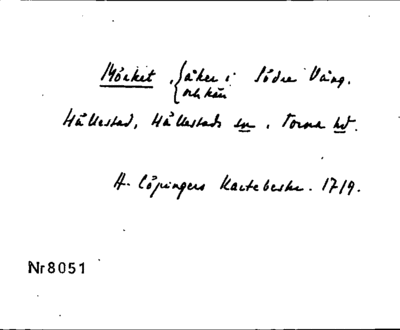 Mörket, { åker i Södra Vång.
och kärr
Hällestad, Hällestads sn, Torna hd.
A. Cöpingers Kartebeskr. 1719.
Nr 8051